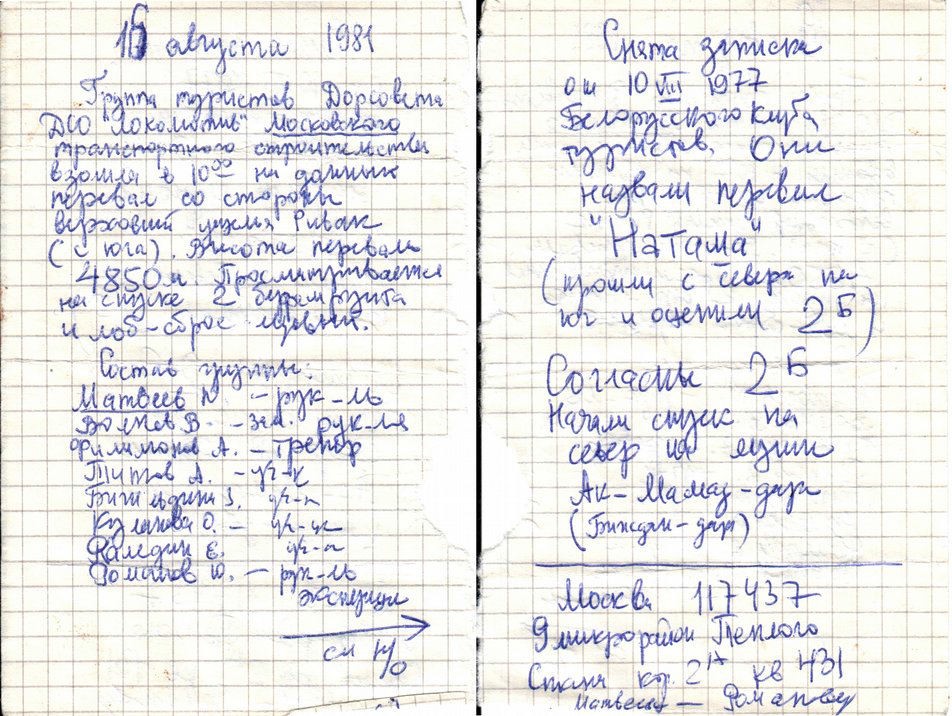 16 августа 1981
Группа туристов Дорсовета
ДСО "Локомотив" Московского
транспортного строительства
взошла в 10⁰⁰ на данный
перевал со стороны
верховий ледника Ривак
(с юга). Высота перевала
4850 м. Просматривается
на спуске 2 бергшрунда
и лоб-сброс ледовый.
Состав группы:
Матвеев Ю. - рук-ль
В. - зам. рук-ля
Филимонов А. - тренер
Титов А. - уч-к
уч-к
Кулакова О. - уч-к
Каледин Е. уч-к
Романов Ю. - рук-ль
экспедиции
см н/о
Снята записка
от 10 VIII 1977
Белорусского клуба
туристов. Они
назвали перевал
"Натама"
(прошли с севера на
юг и оценили 2Б)
Согласны 2Б
Начали спуск на
север на ледник
Ак-Мамаз-дара
(Бижган-дара)
Москва 117437
9 микрорайон Теплого
Стана кор. 21А кв 431
Матвееву - Романову